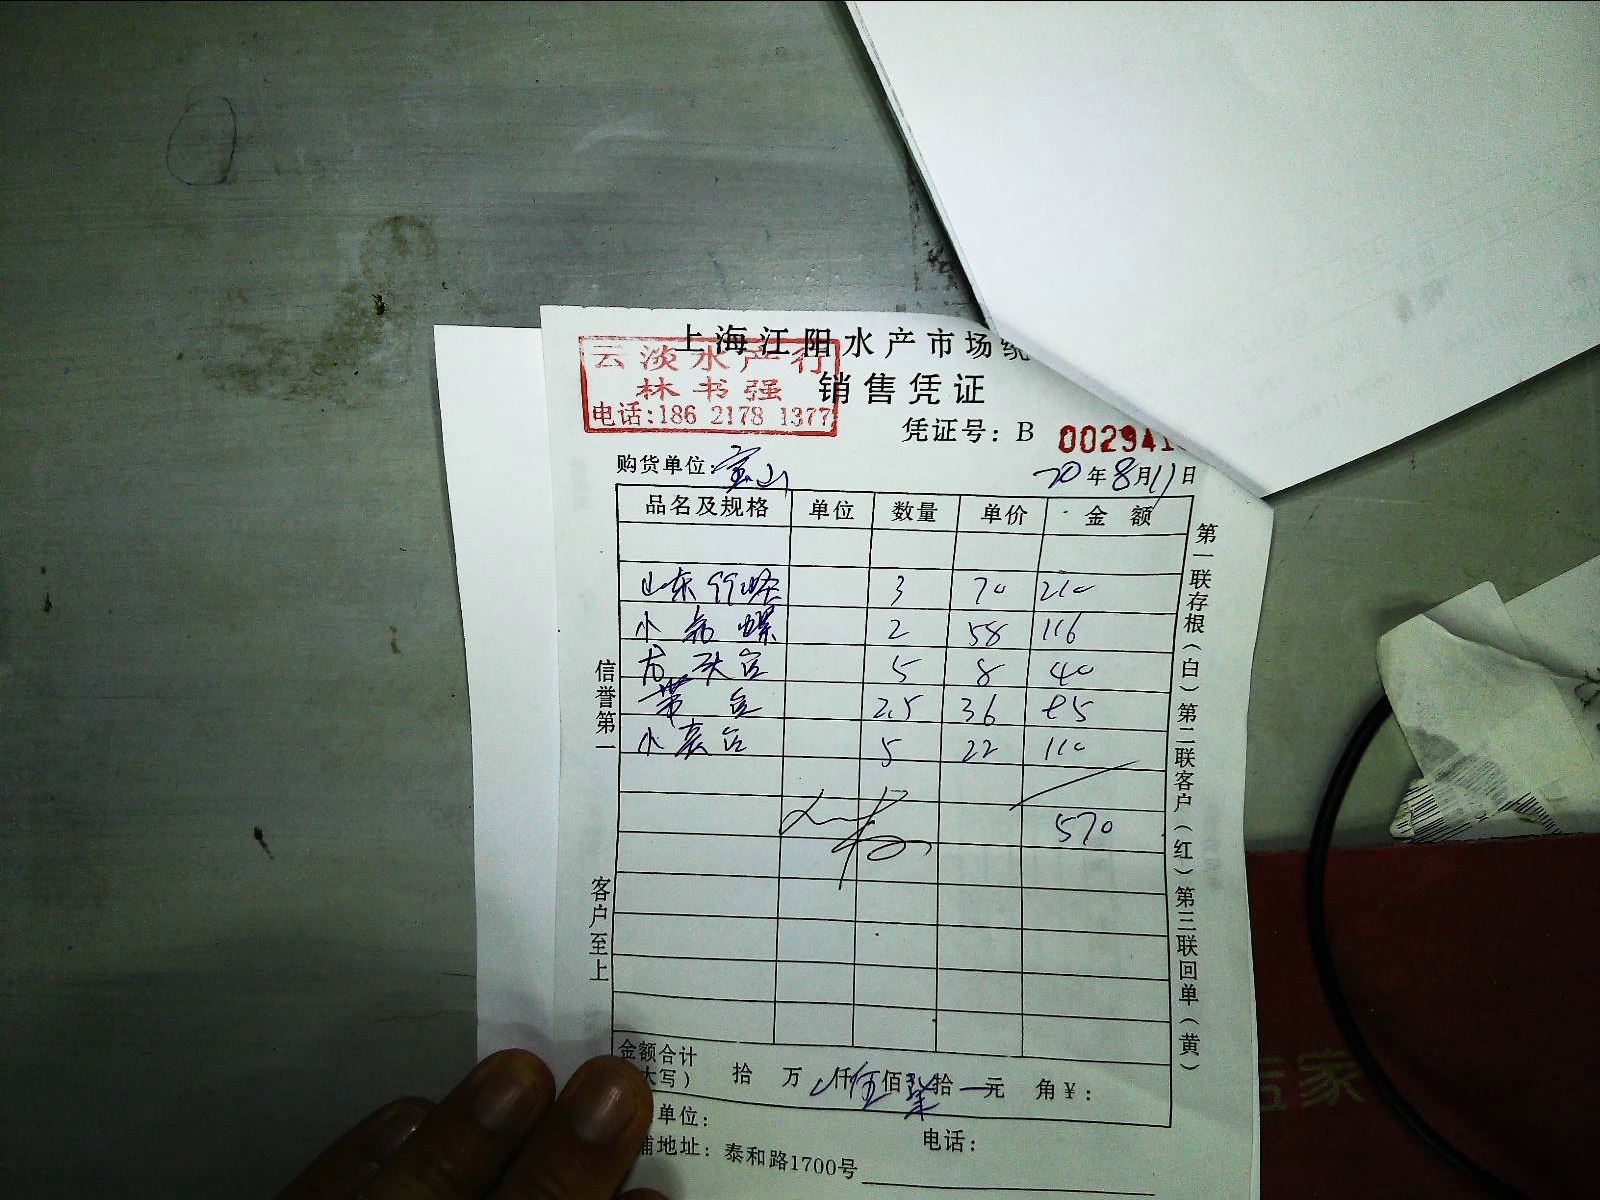 上海江阳水产市场统
云淡水产行
林书强
电话:186 2178 1377
销售凭证
凭证号: B 002941
购货单位: 宝山
20年8月11日
品名及规格 单位 数量 单价 金额
山东 3 70 210
小 螺 2 58 116
龙头 5 8 40
带鱼 2.5 36 85
小黄鱼 5 22 110
570
金额合计
大写) 拾 万 仟伍佰柒拾 元 角¥:
单位:
电话:
铺地址: 泰和路1700号
信誉第一
客户至上
第一联存根(白)第二联客户(红)第三联回单(黄)